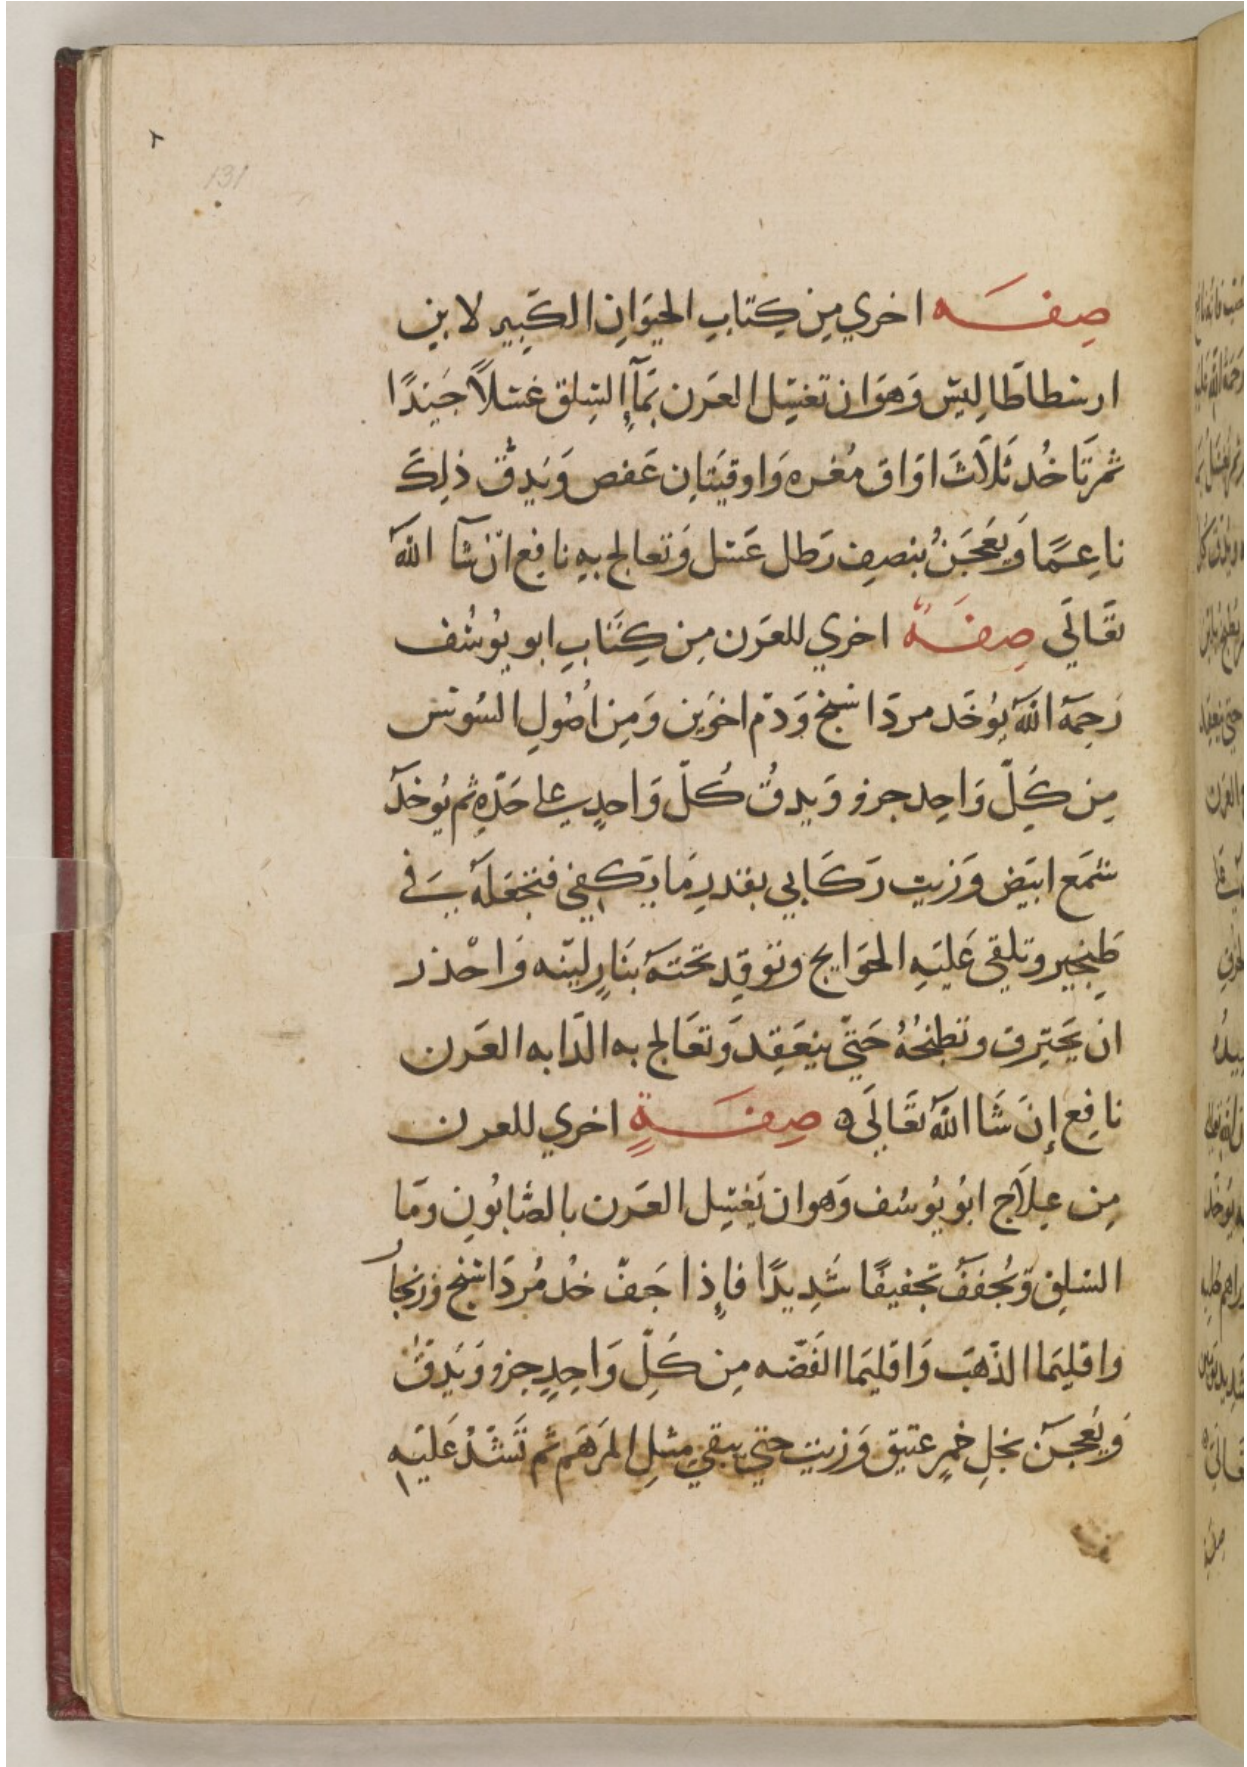 ٢
131
صفه اخري من كِتَابِ الحيَوانِ الكَبِير لابنِ
ارسطاطَالِيسَ وَهوَ ان تغسِل العَرَن بمَآءِ السِلق غَسْلاً جَيّدًا
ثم تَاخُد ثَلاَثَ اوَاق مُغره وَاوقيَتاِن عَفص وَيَدِقّ ذلِكَ
ناعِمًا وَيعَجنُ بنصِف رَطل عَسَل وَتعالج بهِ نافِع انْ شآ اللهَ
تعَالَي صِفَةٌ اخري للعَرَن مِن كِتَابِ ابو يوُسُف
رَحِمَهُ اللهَ يوُخَد مردَاسنج وَدَم اخوَين وَمِن اصُولِ السُوسَ
مِن كَلِّ وَاحِد جزو وَيدقُ كُلّ وَاحدٍ علي حَدّهِ ثم يُوخدَ
شَمَع ابيَض وَزيت رَكَابي بقَدرِ مَا يَكفي فتجعَلهَ في
طِنجير وتلقي عَليَهِ الحوَايج وتوَقِد تحتَهَ بنَارٍ ليّنه وَاحْذر
ان يَحترِق وتطبخُهُ حَتّي ينعَقِدَ وَتعَالج به الدَابه العَرَن
نافِع إنَ شَا اللهَ تعَالَي ه صِفَةٍ اخري للعرن
مِن عِلاَج ابوُ يُوسُف وَهوا ان يَغسِل العَرَن بالصَّابُونِ ومَا
السَلِق وّيُجفف تجفيفًا شَدِيدًا فإِذا جَفّ خد مُردَاسَنج وزنجار
واقليَما الذّهبَ وَاقليَما الفَضّه مِن كَلِّ وَاحِدٍ جزو وَيَدقّ
وَيعُجنَ بخلِ خمرٍ عتيق وَزيت حتي يبقي مِثلِ المَرهَم ثم تَشَدْ عَليَهِ